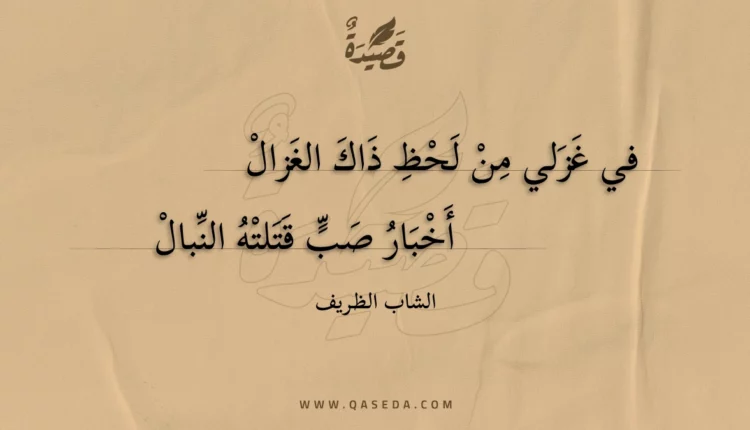 قَصِيْدَةٌ
في غَزَلي مِنْ لَحْظِ ذَاكَ الغَزالْ
أَخْبَارُ صَبٍّ قَتَلتْهُ النِّبالْ
الشاب الظريف
WWW.QASEDA.COM